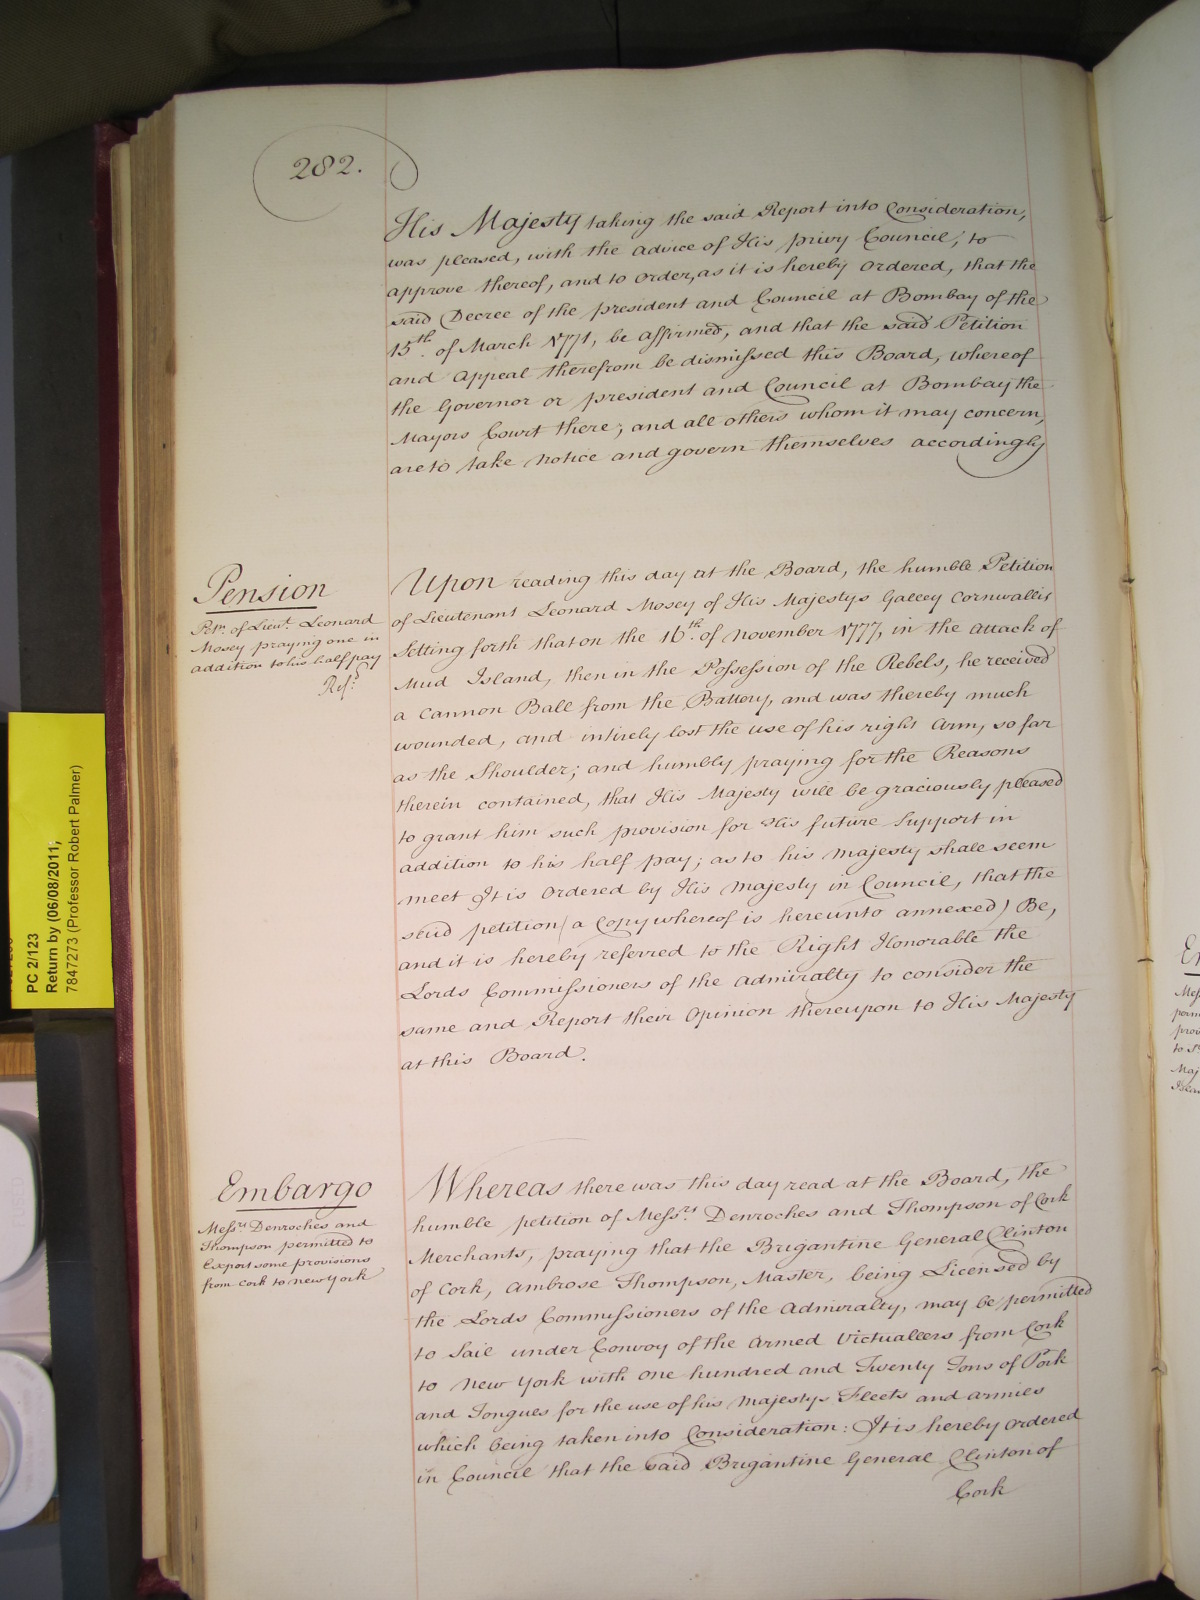 282.
His Majesty taking the said Report into Consideration,
was pleased, with the advice of His privy Council, to
approve thereof, and to order, as it is hereby ordered, that the
said Decree of the president and Council at Bombay of the
15th. of March 1771, be affirmed, and that the said Petition
and Appeal therefrom be dismissed this Board, whereof
the Governor or president and Council at Bombay the
Mayors Court there, and all others whom it may concern,
are to take notice and govern themselves accordingly
Pension
Petn. of Lieut. Leonard
Mosey praying one in
addition to his half pay
Refd.
Upon reading this day at the Board, the humble Petition
of Lieutenant Leonard Mosey of His Majestys Galley Cornwallis
Setting forth that on the 16th. of november 1777, in the attack of
Mud Island, then in the Possession of the Rebels, he received
a Cannon Ball from the Battery, and was thereby much
wounded, and intirely lost the use of his right Arm, so far
as the Shoulder; and humbly praying for the Reasons
therein contained, that His Majesty will be graciously pleased
to grant him such provision for His future Support in
addition to his half pay; as to his majesty shall seem
meet It is ordered by His majesty in Council, that the
said petition (a Copy whereof is hereunto annexed) Be,
and it is hereby referred to the Right Honorable the
Lords Commissioners of the Admiralty to consider the
same and Report their Opinion thereupon to His Majesty
at this Board.
Embargo
Messrs Denroches and
Thompson permitted to
Export some provisions
from Cork to new York
Whereas there was this day read at the Board, the
humble petition of Messrs. Denroches and Thompson of Cork
Merchants, praying that the Brigantine General Clinton
of Cork, Ambrose Thompson, Master, being Licensed by
the Lords Commissioners of the Admiralty, may be permitted
to Sail under Convoy of the Armed Victuallers from Cork
to new York with one hundred and Twenty Tons of Pork
and Tongues for the use of his majestys Fleets and armies
which being taken into Consideration: It is hereby ordered
in Council that the said Brigantine General Clinton of
Cork
PC 2/123
Return by (06/08/2011;
7847273 (Professor Robert Palmer)